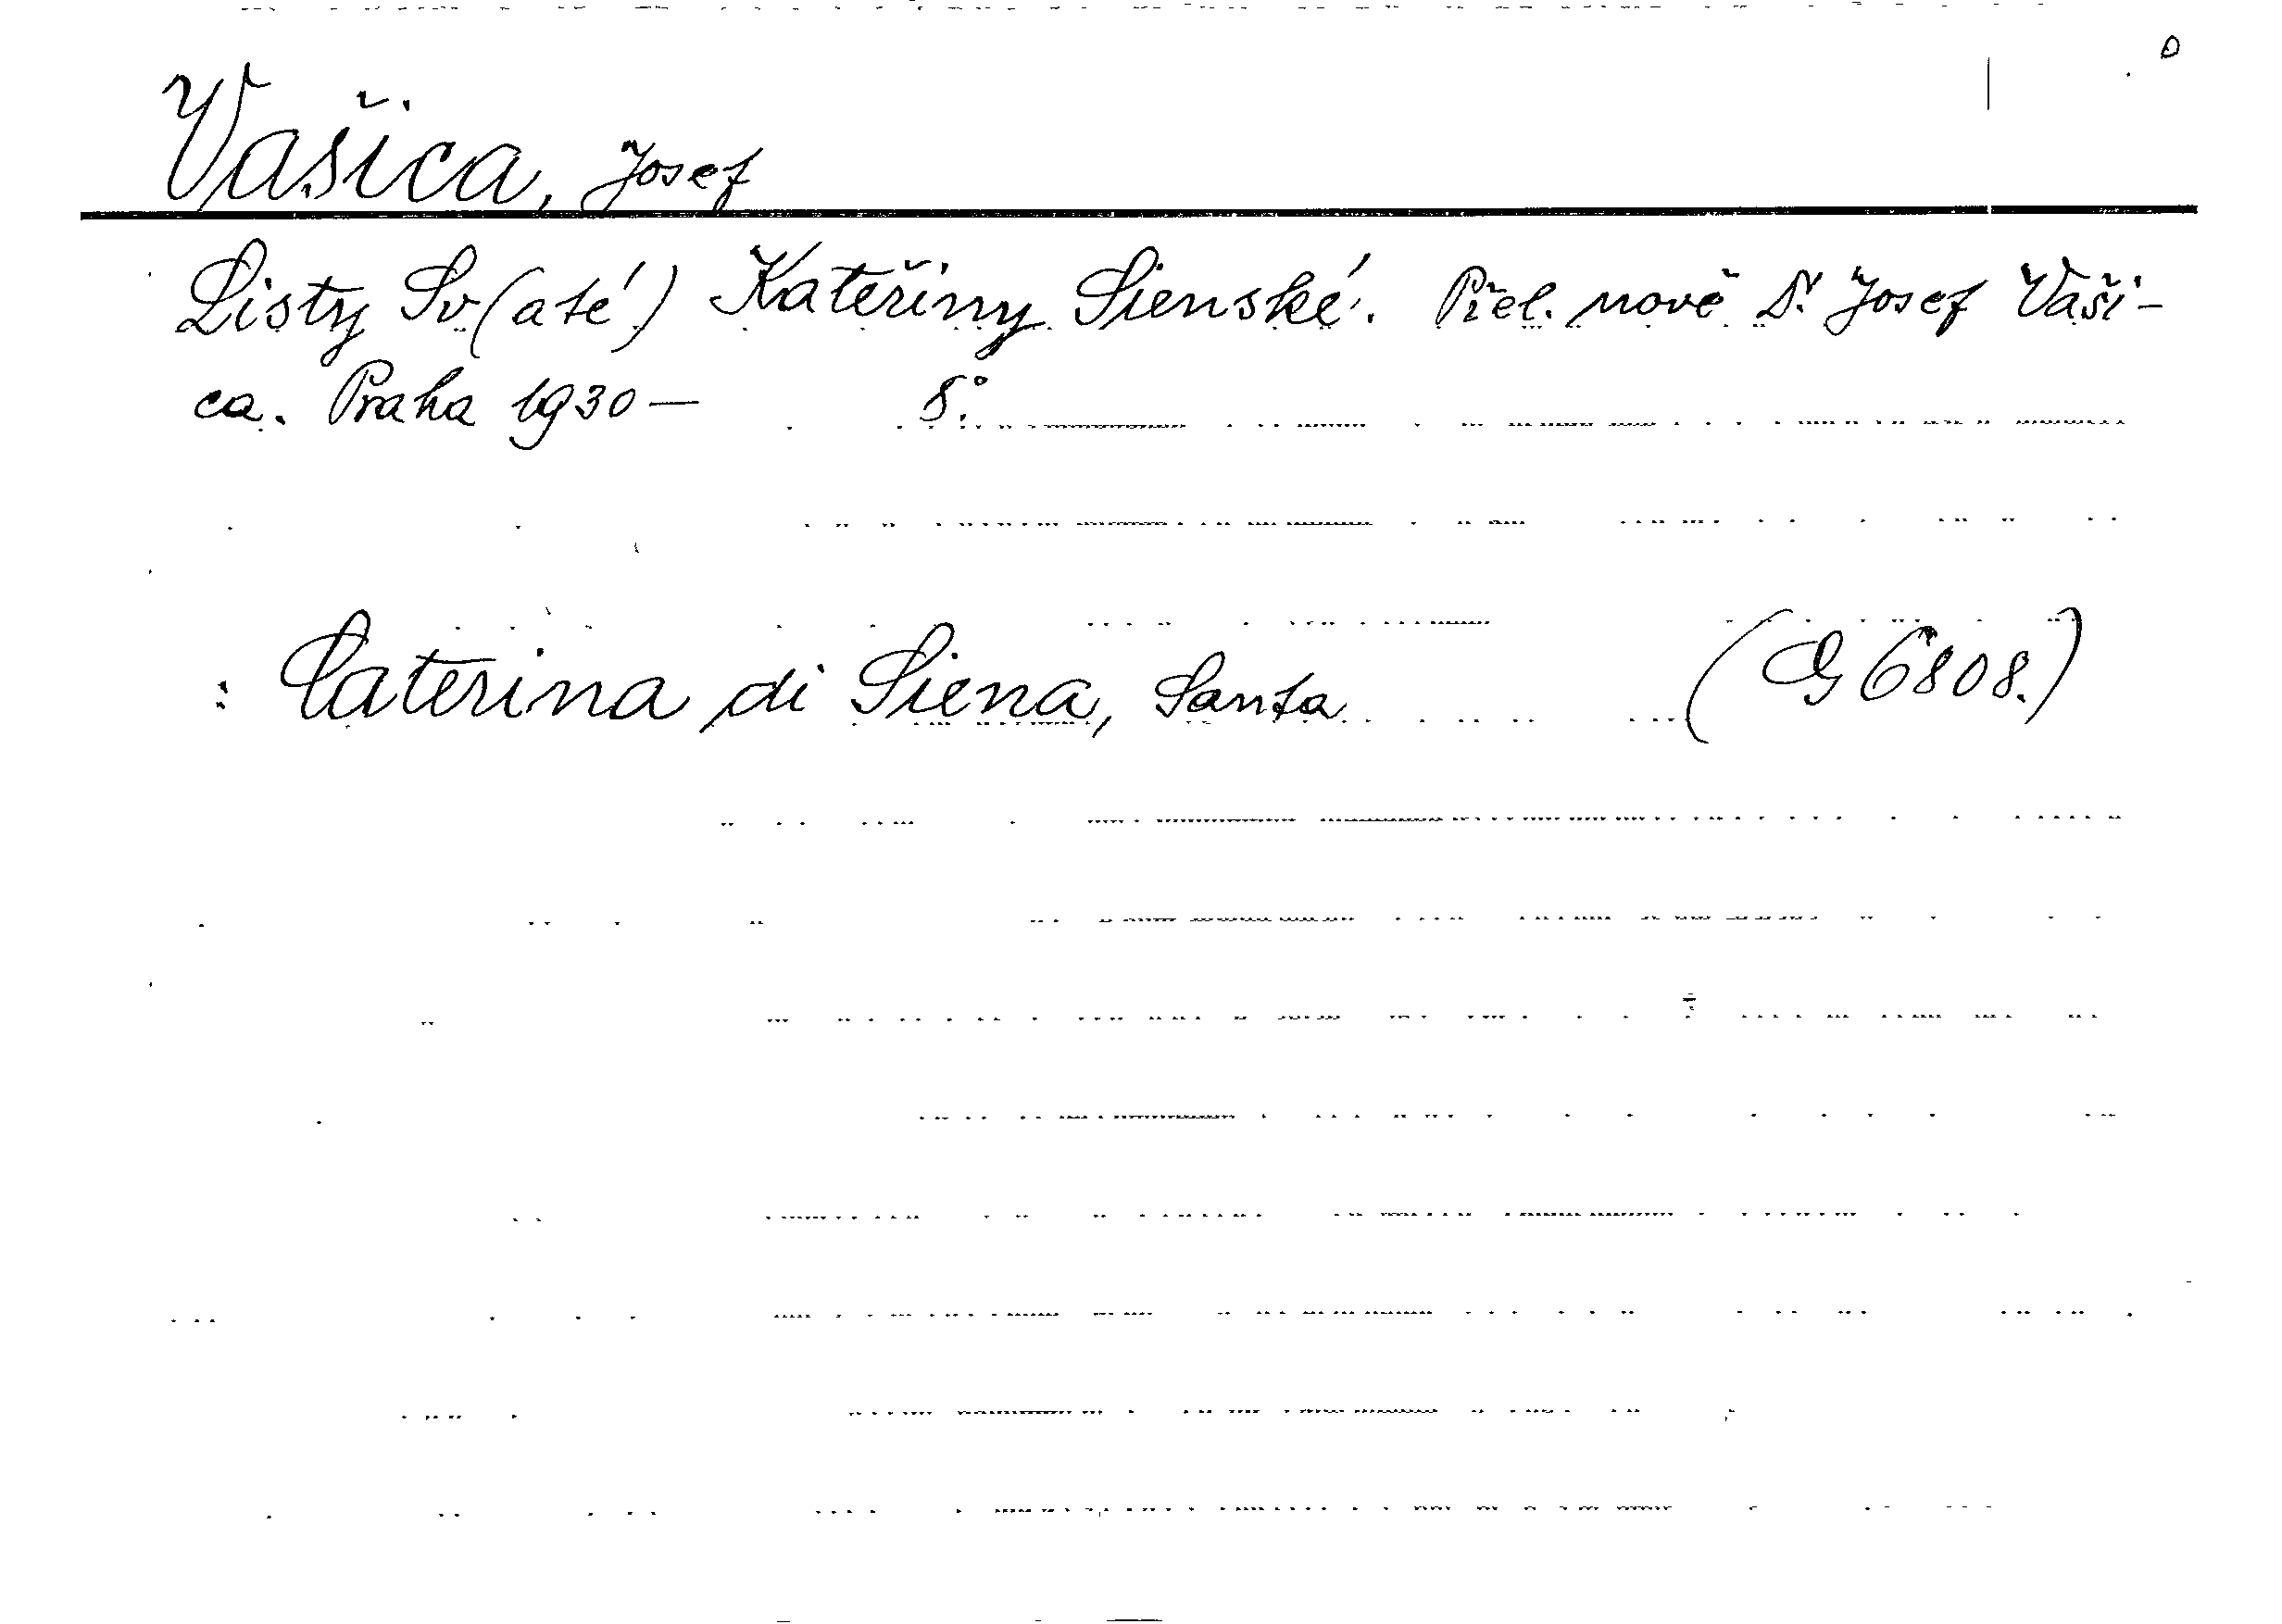 Vašica, Josef
Listy Sv(até) Kateřiny Sienské. Přel. nově Dr Josef Vaši-
ca. Praha 1930— 8°.
: Caterina di Siena, Santa (G 6808.)